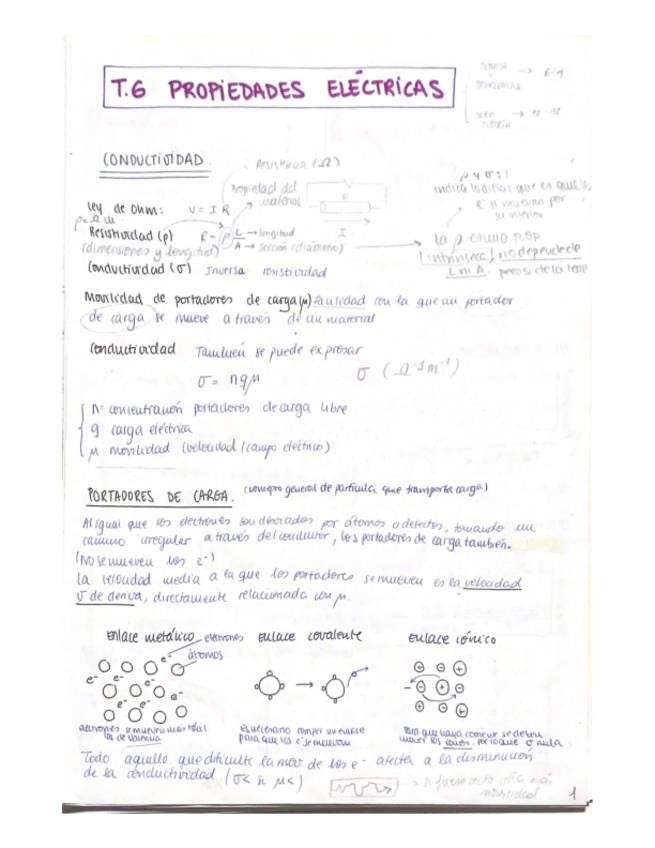 T.6 PROPIEDADES ELÉCTRICAS
TEORÍA
y
PROBLEMAS → 6-9
SOLO
TEORÍA → 10-12
CONDUCTIVIDAD.
Resistencia (Ω)
Propiedad del
material
V
R
I
ρ y σ:
indica lo difícil que es que los
e⁻ se muevan por
su interior
Ley de Ohm: V = I R
ρ = Ω·m
Resistividad (ρ) R = ρ L → longitud
A → sección (diámetro)
(dimensiones y longitud)
la ρ es una prop
intrínseca, no depende de
L ni A, pero sí de la temp
Conductividad (σ) Inversa resistividad
Movilidad de portadores de carga (μ) Facilidad con la que un portador
de carga se mueve a través de un material
Conductividad También se puede expresar
σ = nqμ σ (Ω⁻¹m⁻¹)
n: concentración portadores de carga libre
q: carga eléctrica
μ: movilidad (velocidad/campo eléctrico)
PORTADORES DE CARGA. (concepto general de partícula que transporta carga)
Al igual que los electrones son desviados por átomos o defectos, tomando un
camino irregular a través del conductor, los portadores de carga también.
(No se mueven los e⁻)
La velocidad media a la que los portadores se mueven es la velocidad
de deriva, directamente relacionada con μ.
Enlace metálico electrones Enlace covalente Enlace iónico
átomos
e⁻ e⁻ e⁻ e⁻ e⁻ e⁻
es necesario romper un enlace
para que los e⁻ se muevan
Para que haya corriente se deben
mover los iones, por lo que σ nula
Todo aquello que dificulte la mov de los e⁻ afecta a la disminución
de la conductividad (σ< si μ<)
si fuese recto habría más
movilidad
1